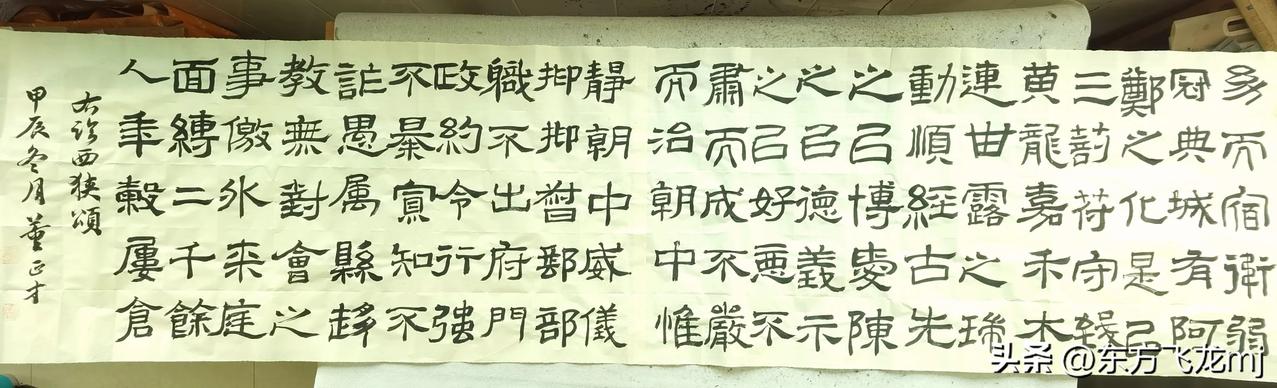 幼而宿衛弱
冠典城有阿
鄭之化是㠯
三剖苻守致
黄龍嘉禾木
連甘露之瑞
動順經古先
之㠯博愛陳
之㠯德義示
之㠯好惡不
肅而成不嚴
而治朝中惟
靜朝中威儀
抑抑督郵部
職不出府門
政約令行強
不暴寡知不
詐愚属縣趍
教無對會之
事儌外来庭
面縛二千餘
人年穀屢倉
右臨西狹頌
甲辰冬月董正才
头条 @东方飞龙mj